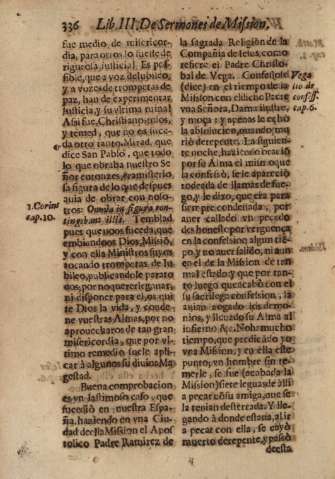 336 Lib. III. De Sermones de Mission.
fue medio, de misericor-
dia, para otros lo fue de
rigurosa justicia! Es pos-
sible, que a voz de Jubileo,
y a vozes de trompetas de
paz, han de experimentar
justicia, y su vltima ruina!
Assi fue, Christianos mios,
y temed, que no os suce-
da otro tanto. Mirad, que
dize San Pablo, que todo
lo que obraba nuestro Se-
ñor entonces, era misterio,
sa figura de lo que despues
avia de obrar con noso-
1. Corint. cap. 10.
tros: Omnia in figura con-
tingebant illis. Temblad
pues que
embiandoos Dios, Missió,
y con ella Ministros suyos
tocando trompetas de Ju-
bileo, publicandole para to
dos, por no querer ganar,
ni disponer para el, os qui-
te Dios la vida, y conde-
ne vuestras Almas, por no
aprovecharos de tan gran
misericordia, que por vl-
timo remedio suele apli-
car à algunos su divina Ma-
gestad.
Buena comprobacion
es vn lastimoso caso, que
sucediò en nuestra Espa-
ña, haziendo en vna Ciu-
dad de ella Mission el Apos-
tolico Padre Ramirez de
la sagrada Religiòn de la
Compañia de Jesus, como
refiere el Padre Christo-
bal de Vega. Confessose
Vega
cap. 6.
(dize) en el tiempo de la
Mission con el dicho Padre
vna Señora, Dama ilustre,
y moça; y apenas le echò
la absolucion, quando mu-
riò derepente. La siguien-
te noche, haziendo oracion
por su Alma el mismo que
la confessò, se le apareciò
rodeada de llamas de fue-
go, y le dixo, que era para
siempre condenada, por
aver callado vn pecado
deshonesto por verguença
en la confession algun tié-
po, y no aver salido, ni aun
en el de la Mission de tan
mal estado: y que por tan-
to luego que acabò con el
su sacrilega confession, la
avian ahogado los demo-
nios, y llevado su Alma al
infierno &c. No ha mucho
tiempo, que predicado yo
vna Mission, y en ella este
punto, vn hombre sin te-
merle, se fue (acabada la
Mission) siete leguas de allì
a pecar cõ su amiga, que se
la tenian desterrada. Y lle-
gando à donde estaba, al ir
a pecar con ella, se cayò
muerto derepente, y passò
desta